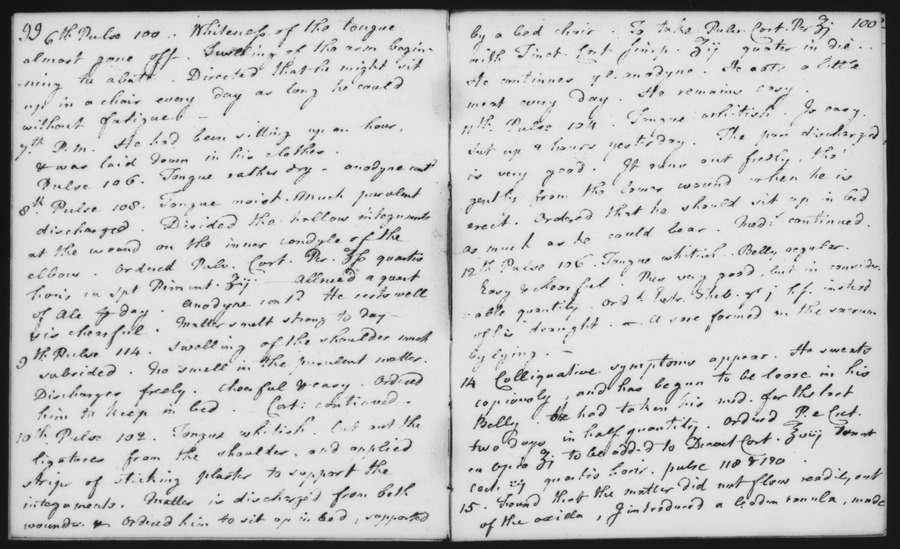 99
6th Pulse 100. Whiteness of the tongue
almost gone off. Swelling of the arm begin-
-ning to abate. Directed that he might sit
up in a chair every day as long he could
without fatigue -
7th P.M. He had been sitting up an hour,
& was laid down in his clothes.
Pulse 106. Tongue rather dry - anodyne contd
8th Pulse 108. Tongue moist. Much purulent
discharged. Divided the hollow integuments
at the wound on the inner condyle of the
elbow. Ordered Pulv. Cort. Per. ℥ß quartis
horis in Spt Piment. ℥j. Allowed a quart
of Ale ⅌ day. Anodyne contd He rests well
& is chearful. Matter smelt strong to day -
9th Pulse 114. Swelling of the shoulder much
subsided. No smell in the purulent matter.
Discharges freely. Chearful & easy. Ordered
him to keep in bed. Cort: continued.
10th Pulse 102. Tongue whitish. Cut out the
ligatures from the shoulder, and applied
strips of sticking plaster to support the
integuments. Matter is discharg'd from both
wounds. & Ordered him to sit up in bed, supported
100
by a bed chair. To take Pulv. Cort. Per ʒj
with Tinct. Cort simp. ʒij quater in die..
He continues ye anodyne. He eats a little
meat every day. He remains easy.
11th. Pulse 124. Tongue whitish. Is easy.
Sat up 2 hours yesterday. The pus discharged
is very good. It runs out freely, tho'
gently from the lower wound when he is
erect. Ordered that he should sit up in bed
as much as he could bear. Medns continued.
12th Pulse 126. Tongue whitish. Belly regular.
Easy & chearful. Pus very good, but in consider-
-able quantity. Ordd instead
of his draught. - A sore formed on the sacrum
by lying. -
14 Colliquative symptoms appear. He sweats
copiously, and has begun to be loose in his
Belly. He had taken his med. for the last
two days in half quantity. Ordered P. e Cret.
cu Opio ℥j to be added to Decoct Cort. ℥viij
coch. ij quartis horis. pulse 118 & 120
15. Found that the matter did not flow readily out
of the axilla, I introduced a leaden canula, made